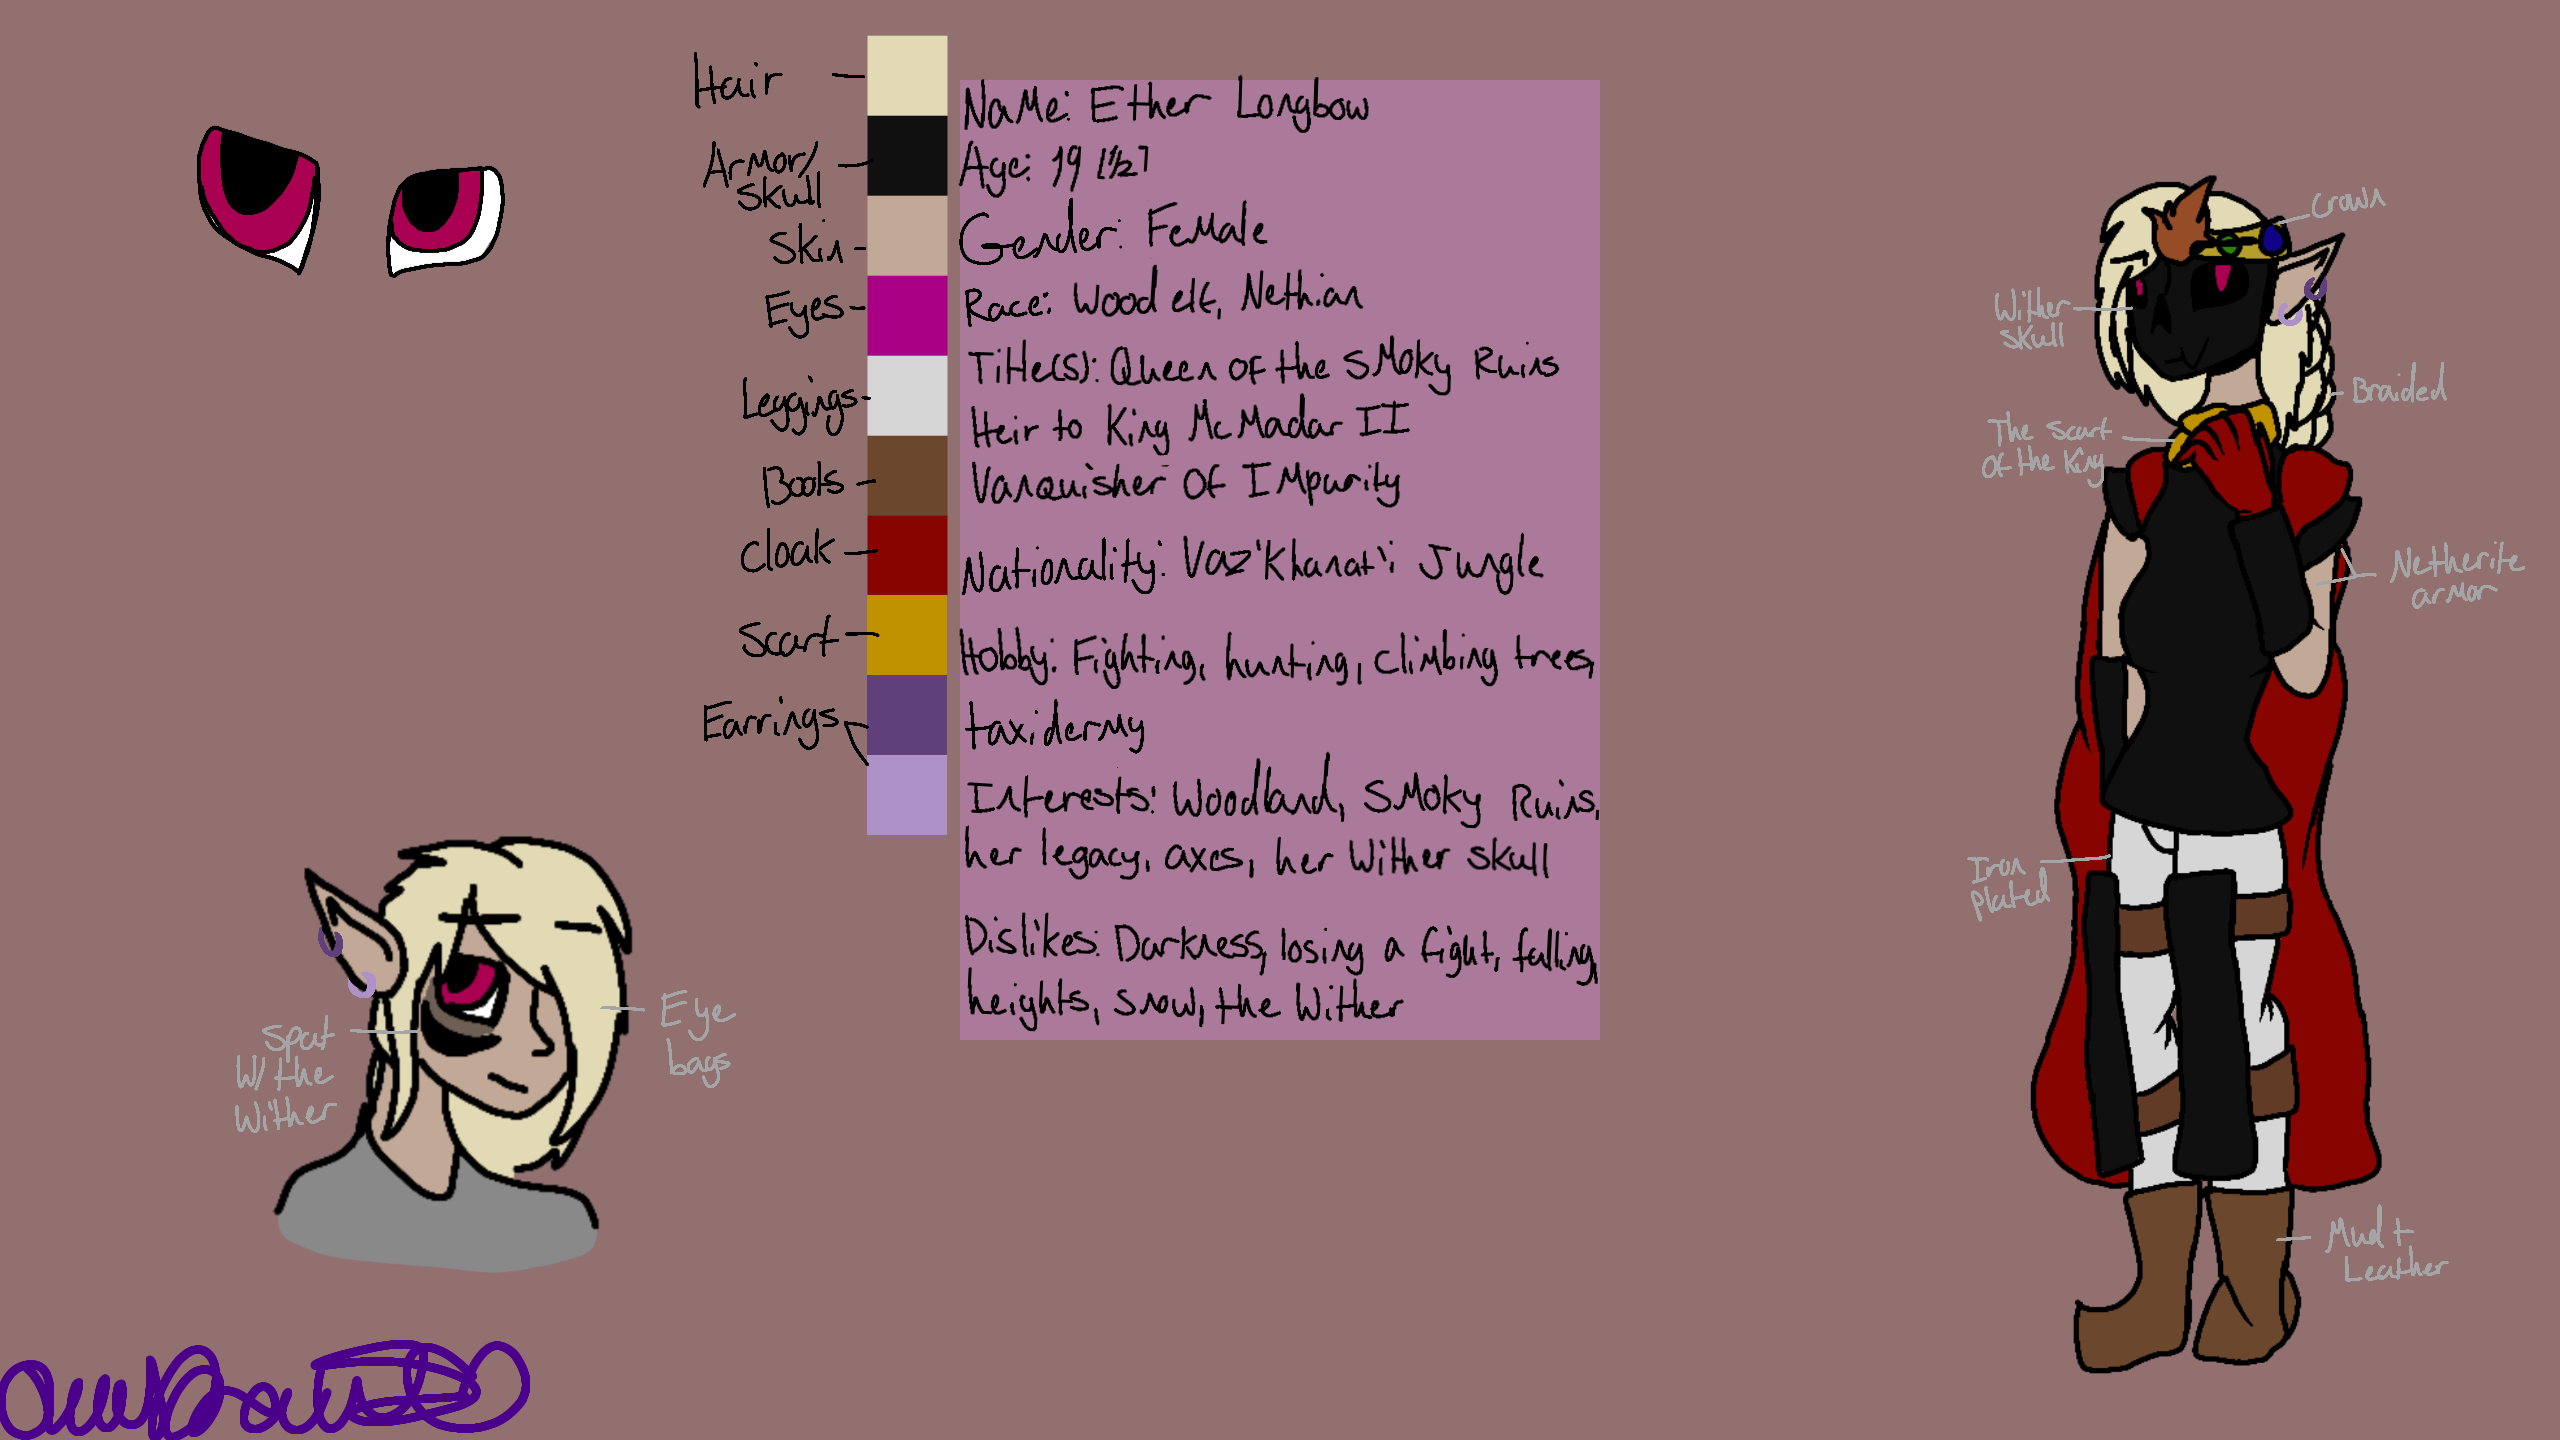 Hair
Armor/
Skull
Skin
Eyes
Leggings
Boots
Cloak
Scarf
Earrings
Name: Ether Longbow
Age: 19 [1/2]
Gender: Female
Race: Wood elf, Nethian
Title(s): Queen of the Smoky Ruins
Heir to King McMadar II
Vanquisher of Impurity
Nationality: Vaz'Khanat'i Jungle
Hobby: Fighting, hunting, climbing trees,
taxidermy
Interests: Woodland, Smoky Ruins,
her legacy, axes, her Wither skull
Dislikes: Darkness, losing a fight, falling,
heights, snow, the Wither
Crown
Wither
Skull
Braided
The Scarf
of the King
Netherite
armor
Iron
plated
Mud +
Leather
Spat
W/ the
Wither
Eye
bags